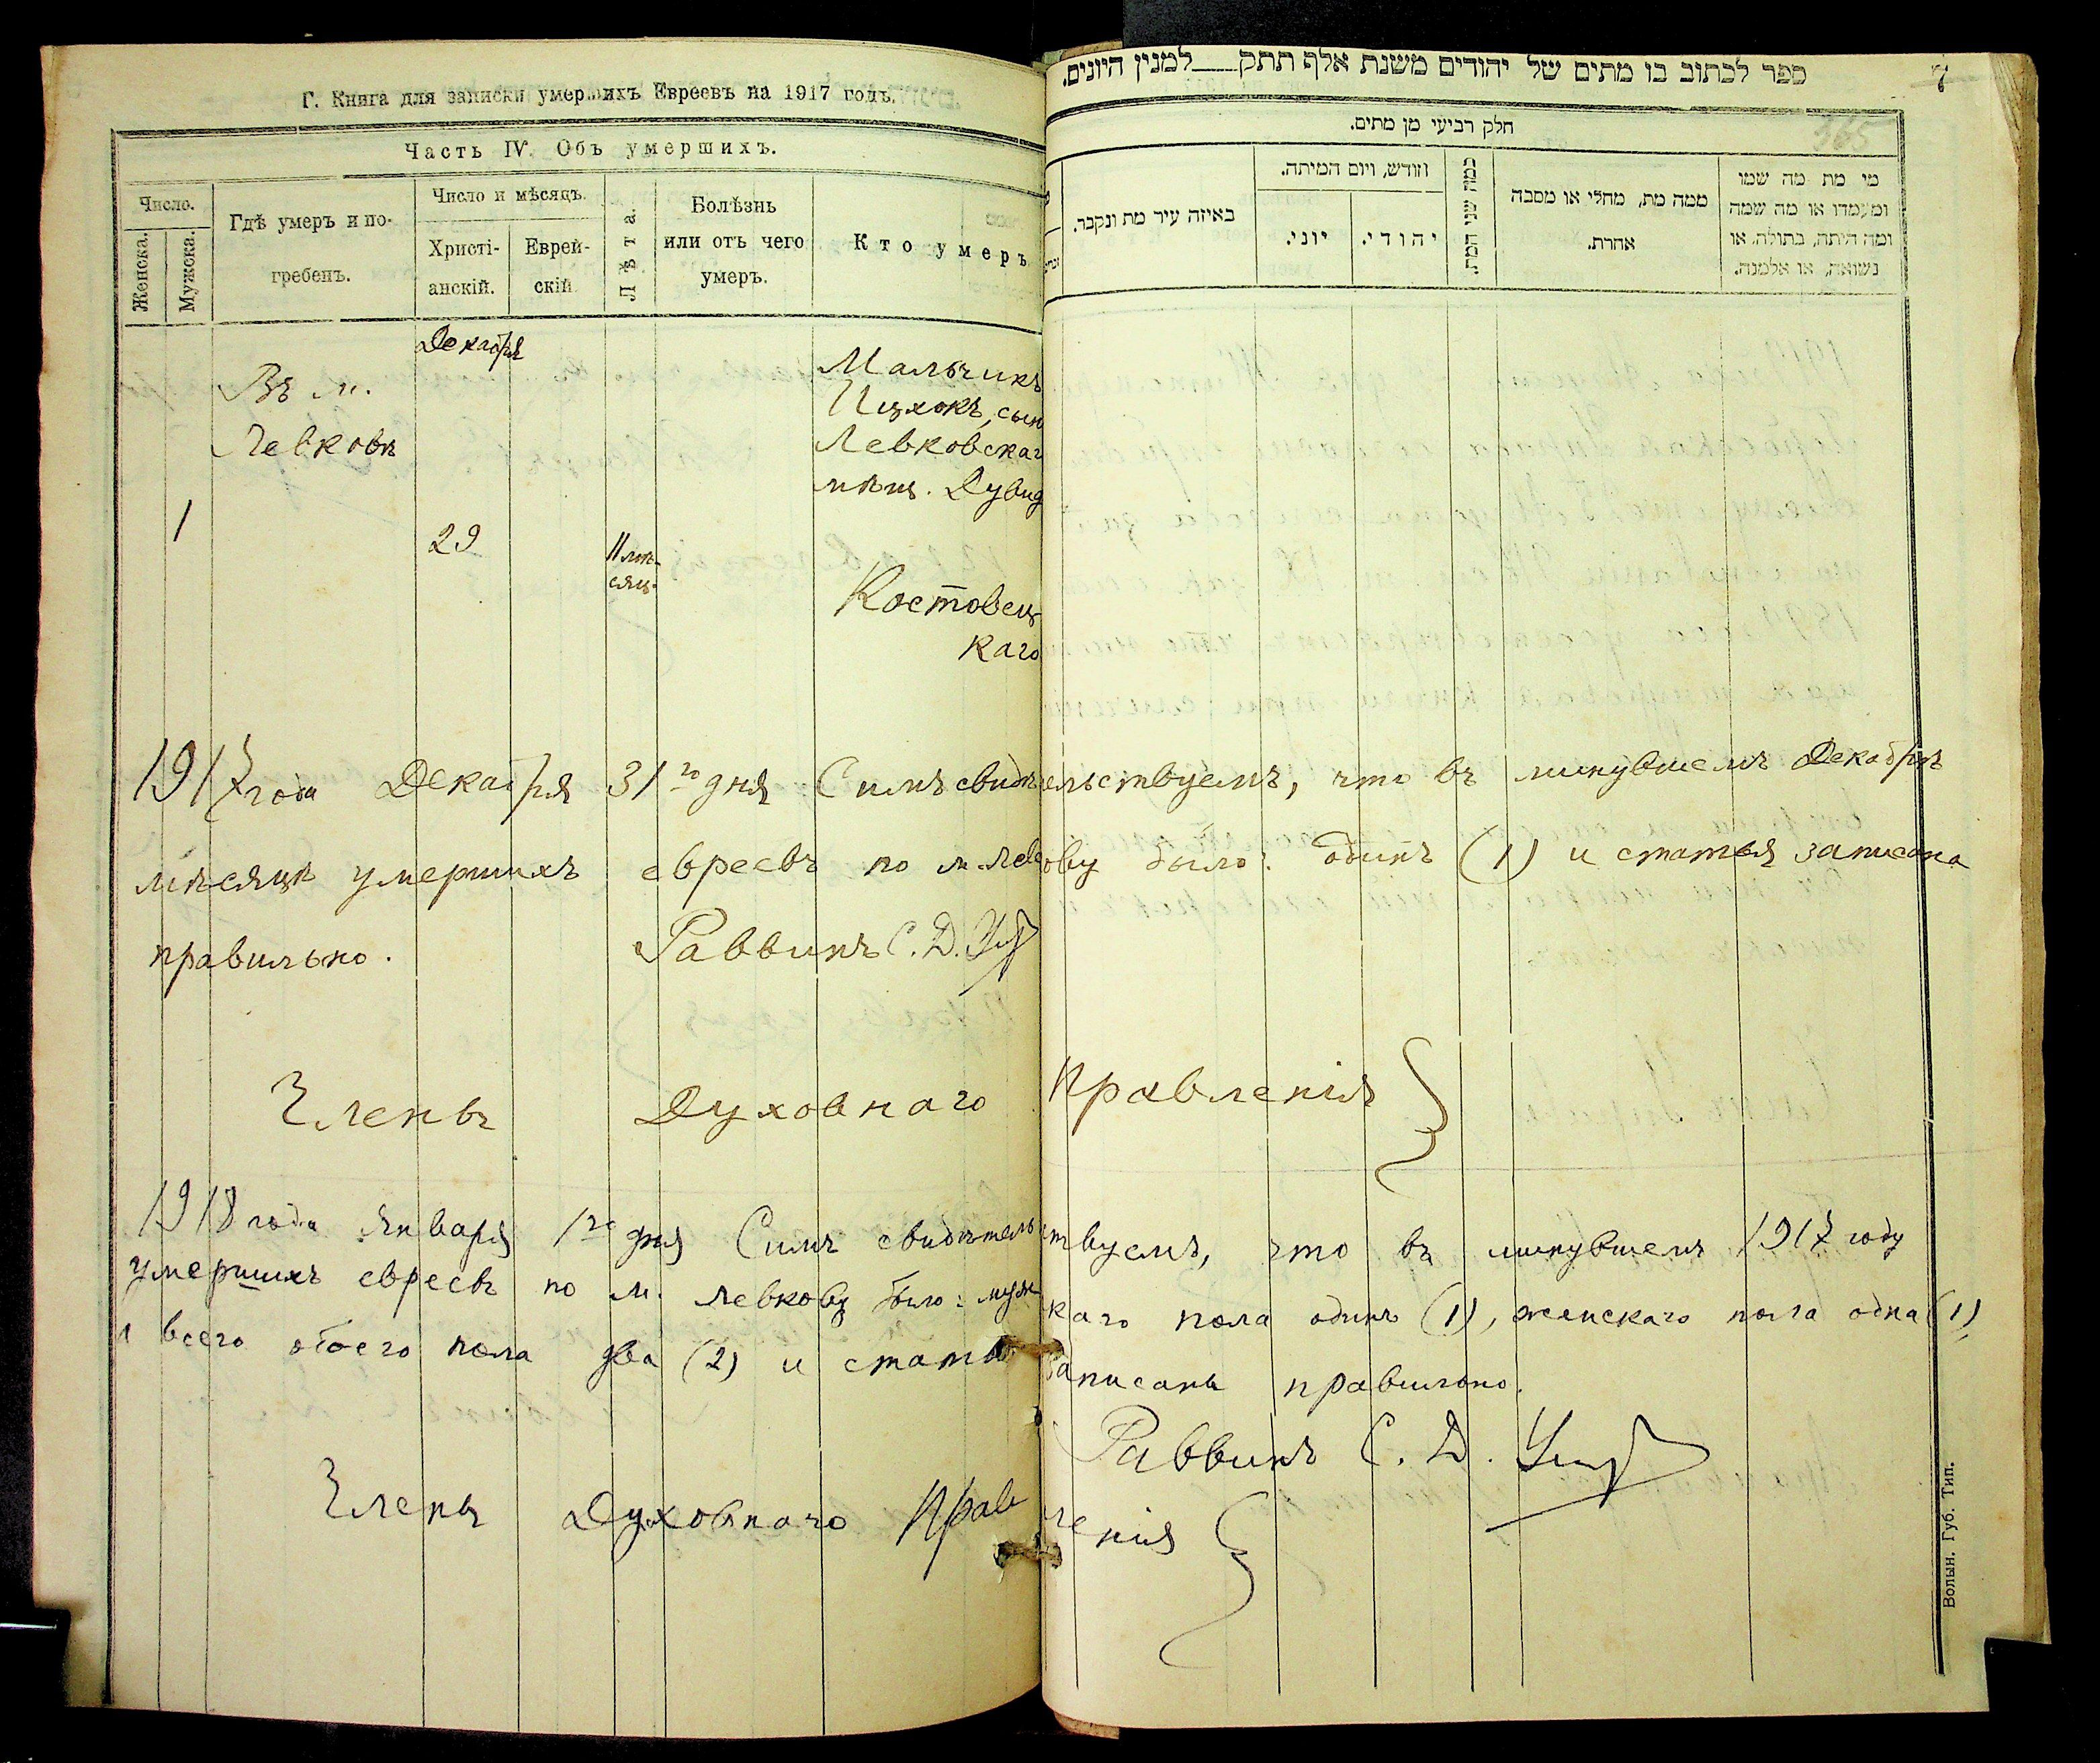 Г. Книга для записки умершихъ Евреевъ на 1917 годъ.
Часть IV. Объ умершихъ.
Число.
Женска.
Мужска.
Гдѣ умеръ и по-
гребенъ.
Число и мѣсяцъ.
Христі-
анскій.
Еврей-
скій
Лѣта.
Болѣзнь
или отъ чего
умеръ.
Кто умеръ
Декабря
Въ м.
Левковѣ
1
29
11 мѣ-
сяц.
Мальчикъ
Ицхокъ, сын
Левковскаг
мѣщ. Дувид
Костовец
каго
ספר לכתוב בו מתים של יהודים משנת אלף תתק__למנין היונים.
7
365
חלק רביעי מן מתים.
מי מת מה שמו
ומעמדו או מה שמה
ומה היתה, בתולה, או
נשואה, או אלמנה.
ממה מת, מחלי או מסבה
אחרת.
כמה שני המת.
חודש, ויום המיתה.
יהודי.
יוני.
באיזה עיר מת ונקבר.
1917 года Декабря 31го дня Симъ свидѣтельствуемъ, что въ минувшемъ Декабрѣ
мѣсяцѣ умершихъ евреевъ по м. Левкову было: одинъ (1) и статья записана
правильно. Раввинъ С. Д.
Члены Духовнаго Правленія
1918 года Января 1го дня Симъ свидѣтельствуемъ, что въ минувшемъ 1917 году
умершихъ евреевъ по м. Левкову было: мужскаго пола одинъ (1), женскаго пола одна (1),
а всего обоего пола два (2) и статьи записаны правильно.
Раввинъ С. Д.
Члены Духовнаго Правленія
Волын. Губ. Тип.